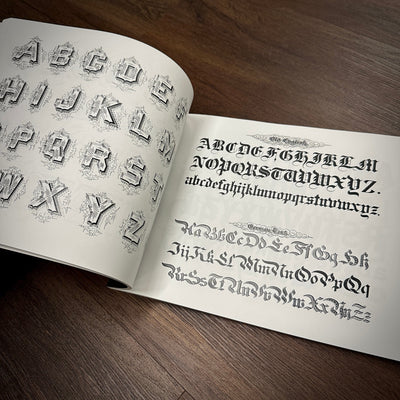 A B C D E
H I J K L
P Q R S T
W X Y Z
Old English.
ABCDEFGHIJKLM
NOPQRSTUVWXYZ.
abcdefghijklmnopqrstuvwxyz.
German Text
Aa Bb Cc Dd Ee Ff Gg Hh
Ii Jj Kk Ll Mm Nn Oo Pp Qq
Rr Ss Tt Uu Vv Ww Xx Yy Zz